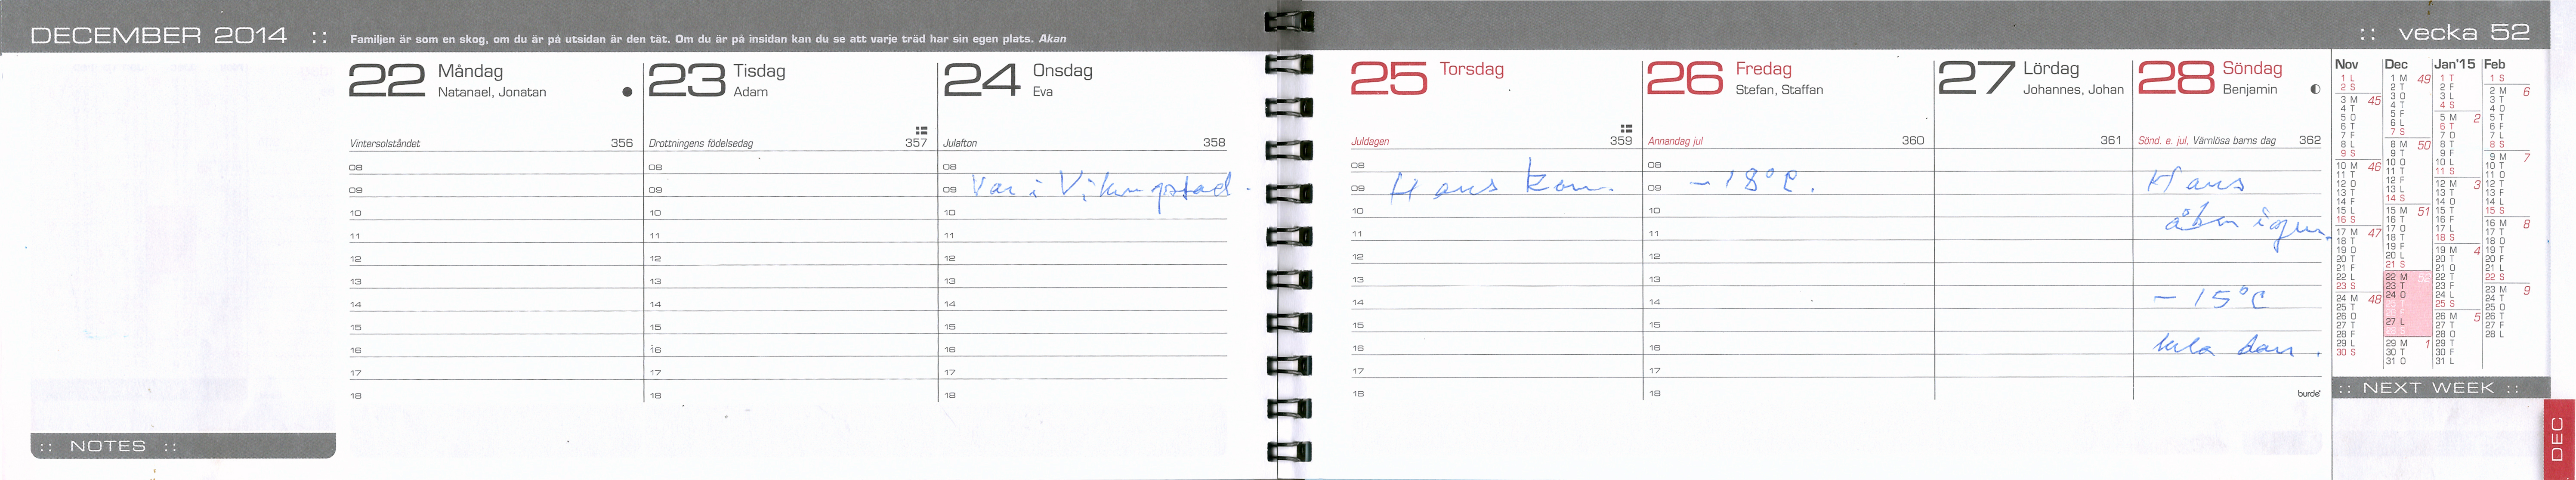 DECEMBER 2014 ::
Familjen är som en skog, om du är på utsidan är den tät. Om du är på insidan kan du se att varje träd har sin egen plats. Akan
:: vecka 52
22 Måndag
Natanael, Jonatan
Vintersolståndet 356
08
09
10
11
12
13
14
15
16
17
18
23 Tisdag
Adam
Drottningens födelsedag 357
08
09
10
11
12
13
14
15
16
17
18
24 Onsdag
Eva
Julafton 358
08
09 Var i Vikingstad.
10
11
12
13
14
15
16
17
18
25 Torsdag
Juldagen 359
08
09 Hans kom.
10
11
12
13
14
15
16
17
18
26 Fredag
Stefan, Staffan
Annandag jul 360
08
09 -18°C.
10
11
12
13
14
15
16
17
18
27 Lördag
Johannes, Johan
361
28 Söndag
Benjamin
Sönd. e. jul, Värnlösa barns dag 362
Hans
åken igen.
-15°C
hela dan.
burde
Nov
1 L
2 S
3 M 45
4 T
5 O
6 T
7 F
8 L
9 S
10 M 46
11 T
12 O
13 T
14 F
15 L
16 S
17 M 47
18 T
19 O
20 T
21 F
22 L
23 S
24 M 48
25 T
26 O
27 T
28 F
29 L
30 S
Dec
1 M 49
2 T
3 O
4 T
5 F
6 L
7 S
8 M 50
9 T
10 O
11 T
12 F
13 L
14 S
15 M 51
16 T
17 O
18 T
19 F
20 L
21 S
22 M 52
23 T
24 O
27 L
29 M 1
30 T
31 O
Jan'15
1 T
2 F
3 L
4 S
5 M 2
6 T
7 O
8 T
9 F
10 L
11 S
12 M 3
13 T
14 O
15 T
16 F
17 L
18 S
19 M 4
20 T
21 O
22 T
23 F
24 L
25 S
26 M 5
27 T
28 O
29 T
30 F
31 L
Feb
1 S
2 M 6
3 T
4 O
5 T
6 F
7 L
8 S
9 M 7
10 T
11 O
12 T
13 F
14 L
15 S
16 M 8
17 T
18 O
19 T
20 F
21 L
22 S
23 M 9
24 T
25 O
26 T
27 F
28 L
:: NEXT WEEK ::
DEC
:: NOTES ::